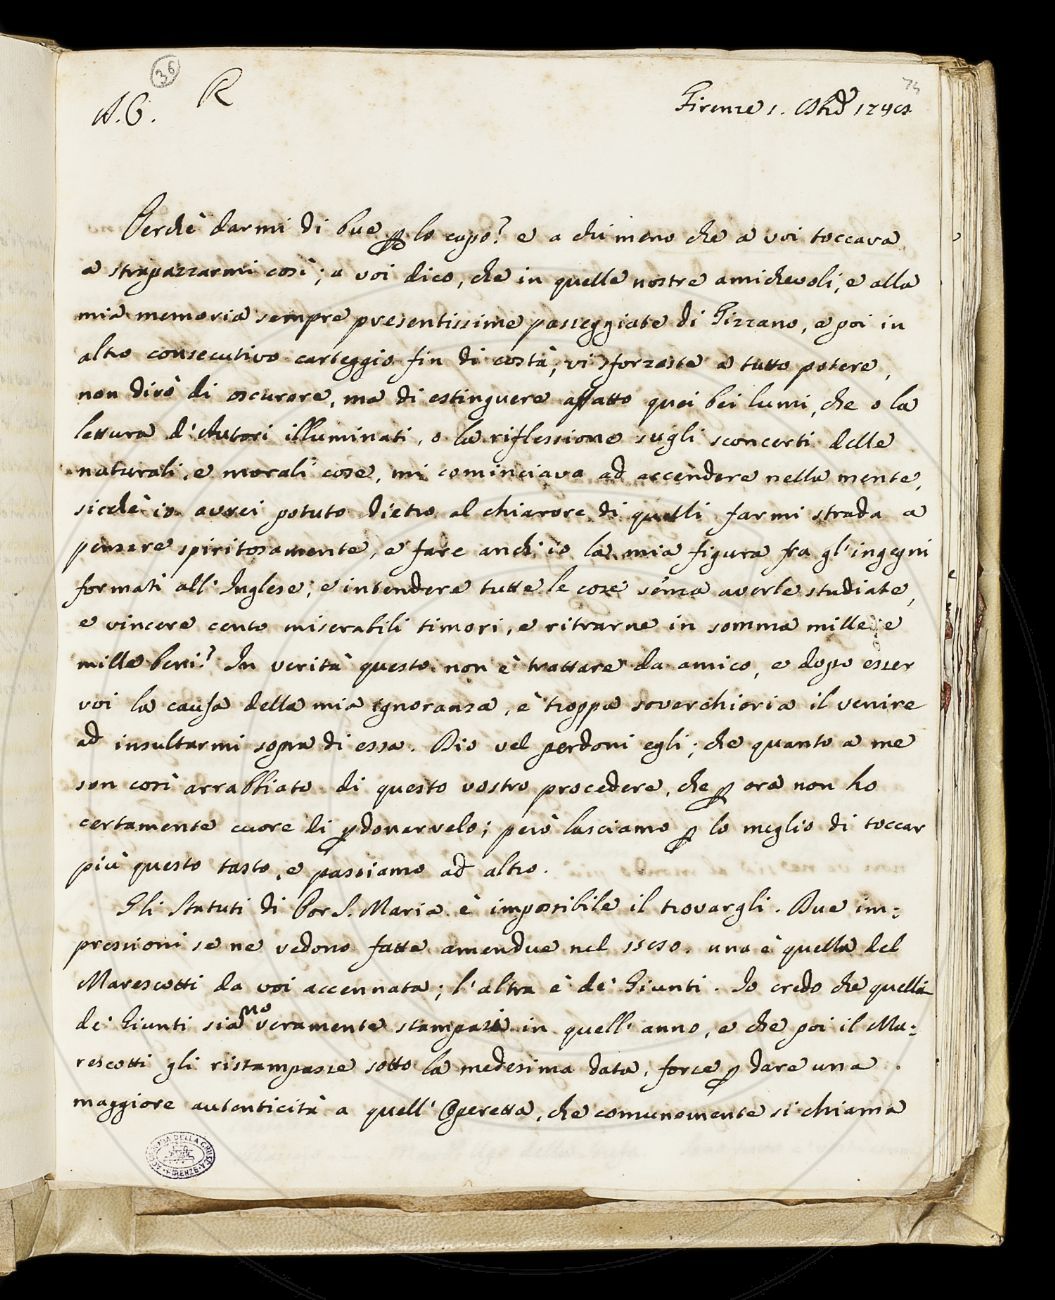 36
74
A. C. R
Firenze 1. 8bre 1746
Perchè darmi di bue p lo capo? e a chi meno che a voi toccava
a strapazzarmi così; a voi dico, che in quelle nostre amichevoli, e alla
mia memoria sempre presentissime passeggiate di Pizzano, e poi in
altro consecutivo carteggio fin di costà, vi sforzaste a tutto potere,
non dirò di oscurare, ma di estinguere affatto quei bei lumi, che o la
lettura d'Autori illuminati, o la riflessione sugli sconcerti delle
naturali, e morali cose, mi cominciava ad accendere nella mente,
sicchè io avrei potuto dietro al chiarore di quelli farmi strada a
pensare spiritosamente, e fare anch'io la mia figura fra gl'ingegni
formati all'Inglese; e intendere tutte le cose senza averle studiate,
e vincere cento miserabili timori, e ritrarne in somma mille e
mille beni? In verità questo non è trattare da amico, e dopo esser
voi la causa della mia ignoranza, è troppa soverchieria il venire
ad insultarmi sopra di essa. Dio vel perdoni egli; che quanto a me
son così arrabbiato di questo vostro procedere, che p ora non ho
certamente cuore di pdonarvelo; però lasciamo p lo meglio di toccar
più questo tasto, e passiamo ad altro.
Gli Statuti di Por S. Maria è impossibile il trovargli. Due im-
pressioni se ne vedono fatte amendue nel 1580. una è quella del
Marescotti da voi accennata; l'altra è de' Giunti. Io credo che quella
de' Giunti sia veramente stampata in quell'anno, e che poi il Ma-
rescotti gli ristampasse sotto la medesima data, forse p dare una
maggiore autenticità a quell'Operetta, che comunemente si chiama
ACCADEMIA DELLA CRUSCA FIRENZE